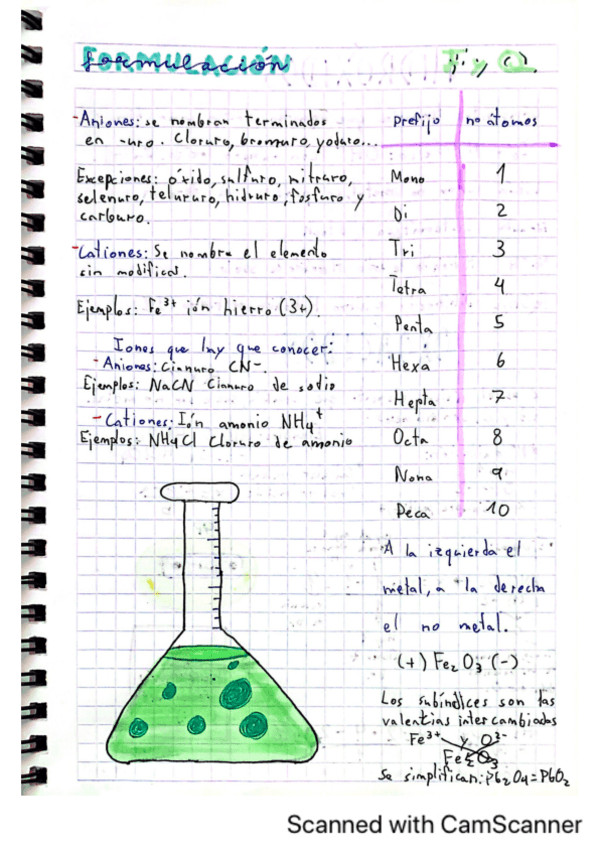 FORMULACIÓN
F y Q
-Aniones: se nombran terminados
en -uro. Cloruro, bromuro, yoduro...
Excepciones: óxido, sulfuro, nitruro,
selenuro, telururo, hidruro, fosfuro y
carburo.
-Cationes: Se nombra el elemento
sin modificar.
Ejemplos: Fe³⁺ ión hierro (3+).
Iones que hay que conocer:
- Aniones: Cianuro CN-.
Ejemplos: NaCN Cianuro de sodio
- Cationes: Ión amonio NH4⁺
Ejemplos: NH4Cl Cloruro de amonio
Prefijo no átomos
Mono 1
Di 2
Tri 3
Tetra 4
Penta 5
Hexa 6
Hepta 7
Octa 8
Nona 9
Deca 10
A la izquierda el
metal, a la derecha
el no metal.
(+) Fe2 O3 (-)
Los subíndices son las
valentias intercambiadas
Fe³⁺ y O²⁻
Fe2O3
Se simplifican: Pb2O4=PbO2
Scanned with CamScanner